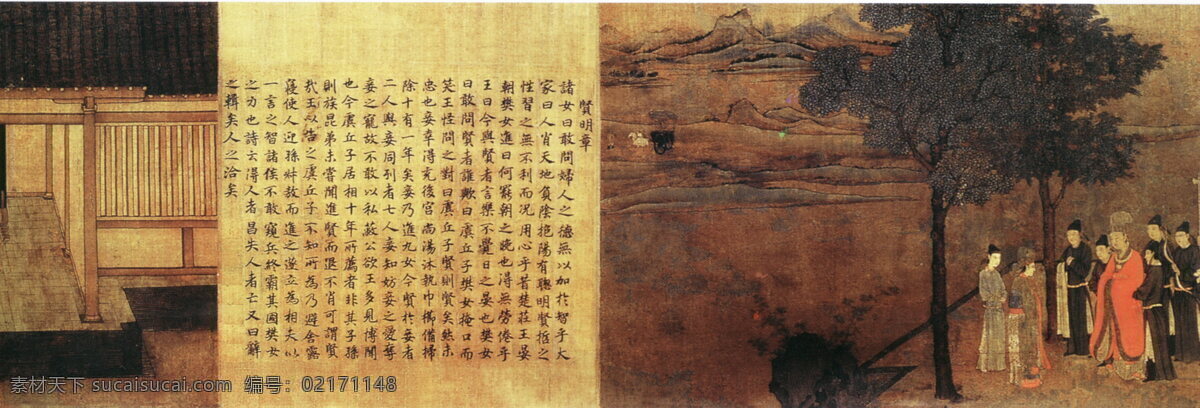 賢明章
諸女曰敢問婦人之德無以加於智乎大
家曰人肖天地負陰抱陽有聰明賢哲之
性習之無不利而况用心乎昔楚莊王晏
朝樊女進曰何罷朝之晚也得無勞倦乎
王曰今與賢者言樂不覺日之晏也樊女
曰敢問賢者誰歟曰虞丘子樊女掩口而
笑王怪問之對曰虞丘子賢則賢矣然未
忠也妾幸得充後宮尚湯沐執巾櫛備掃
除十有一年矣妾乃進九女今賢於妾者
二人與妾同列者七人妾知妨妾之愛奪
妾之寵故不敢以私蔽公欲王多見博聞
也今虞丘子居相十年所薦者非其子孫
則族昆弟未嘗聞進賢而退不肖可謂賢
哉王以告之虞丘子不知所為乃避舍露
寢使人迎孫叔敖而進之遂立為相夫以
一言之智諸侯不敢窺兵終霸其國樊女
之力也詩云得人者昌失人者亡又曰辭
之輯矣人之洽矣
素材天下 sucaisucai.com 编号：02171148